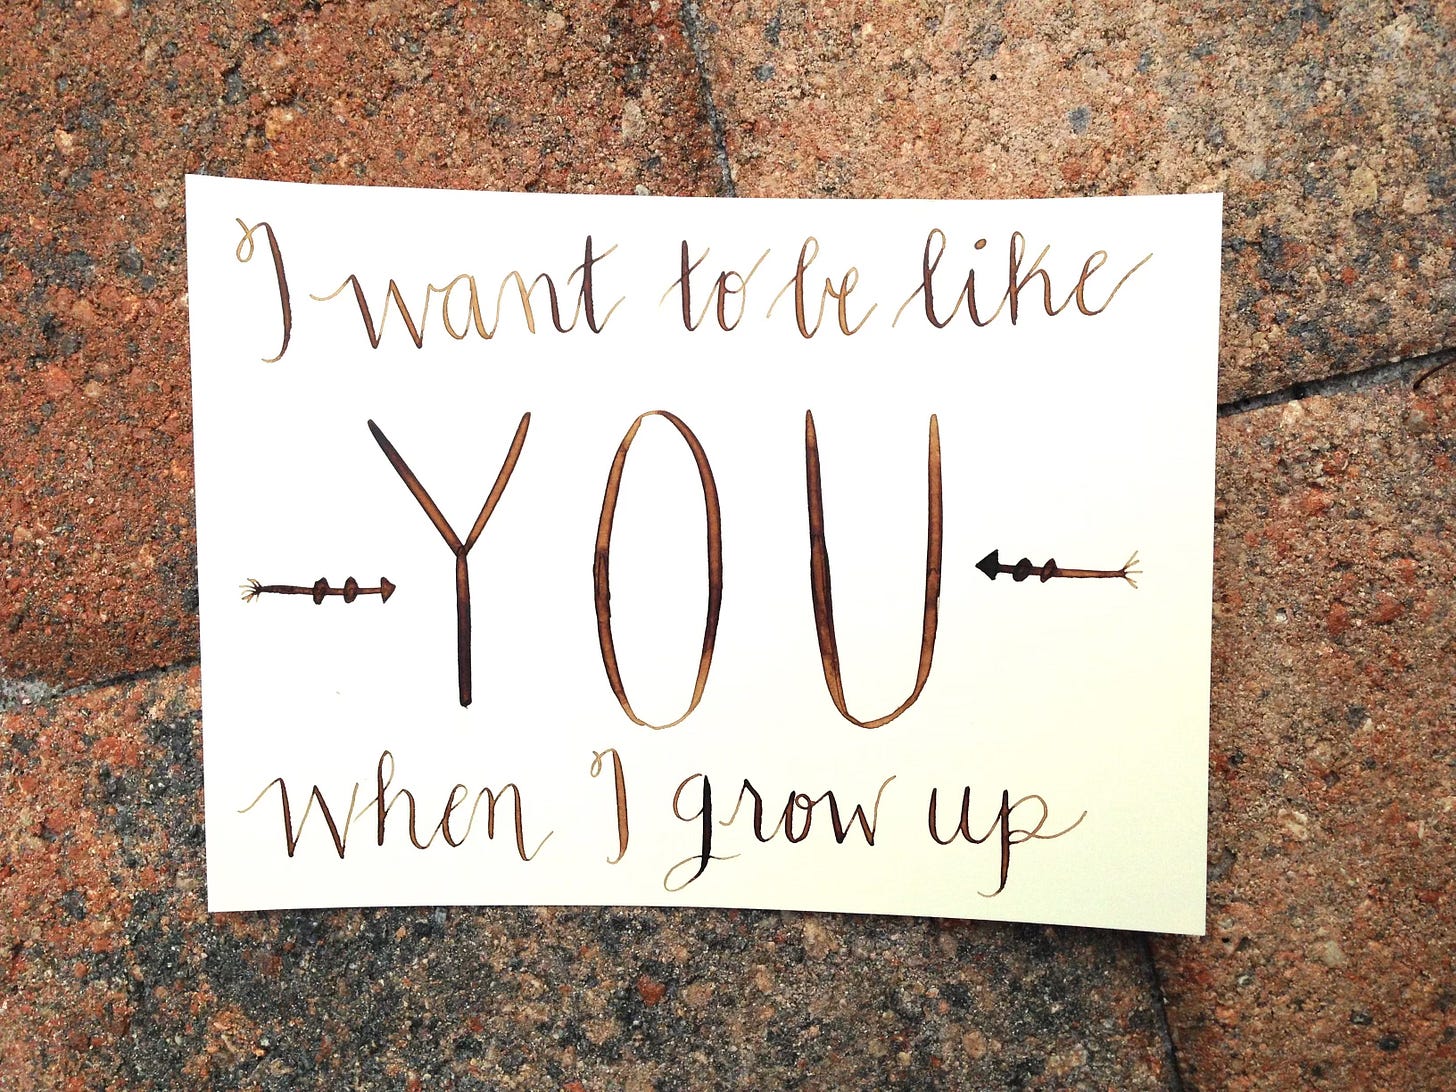 I want to be like
YOU
when I grow up